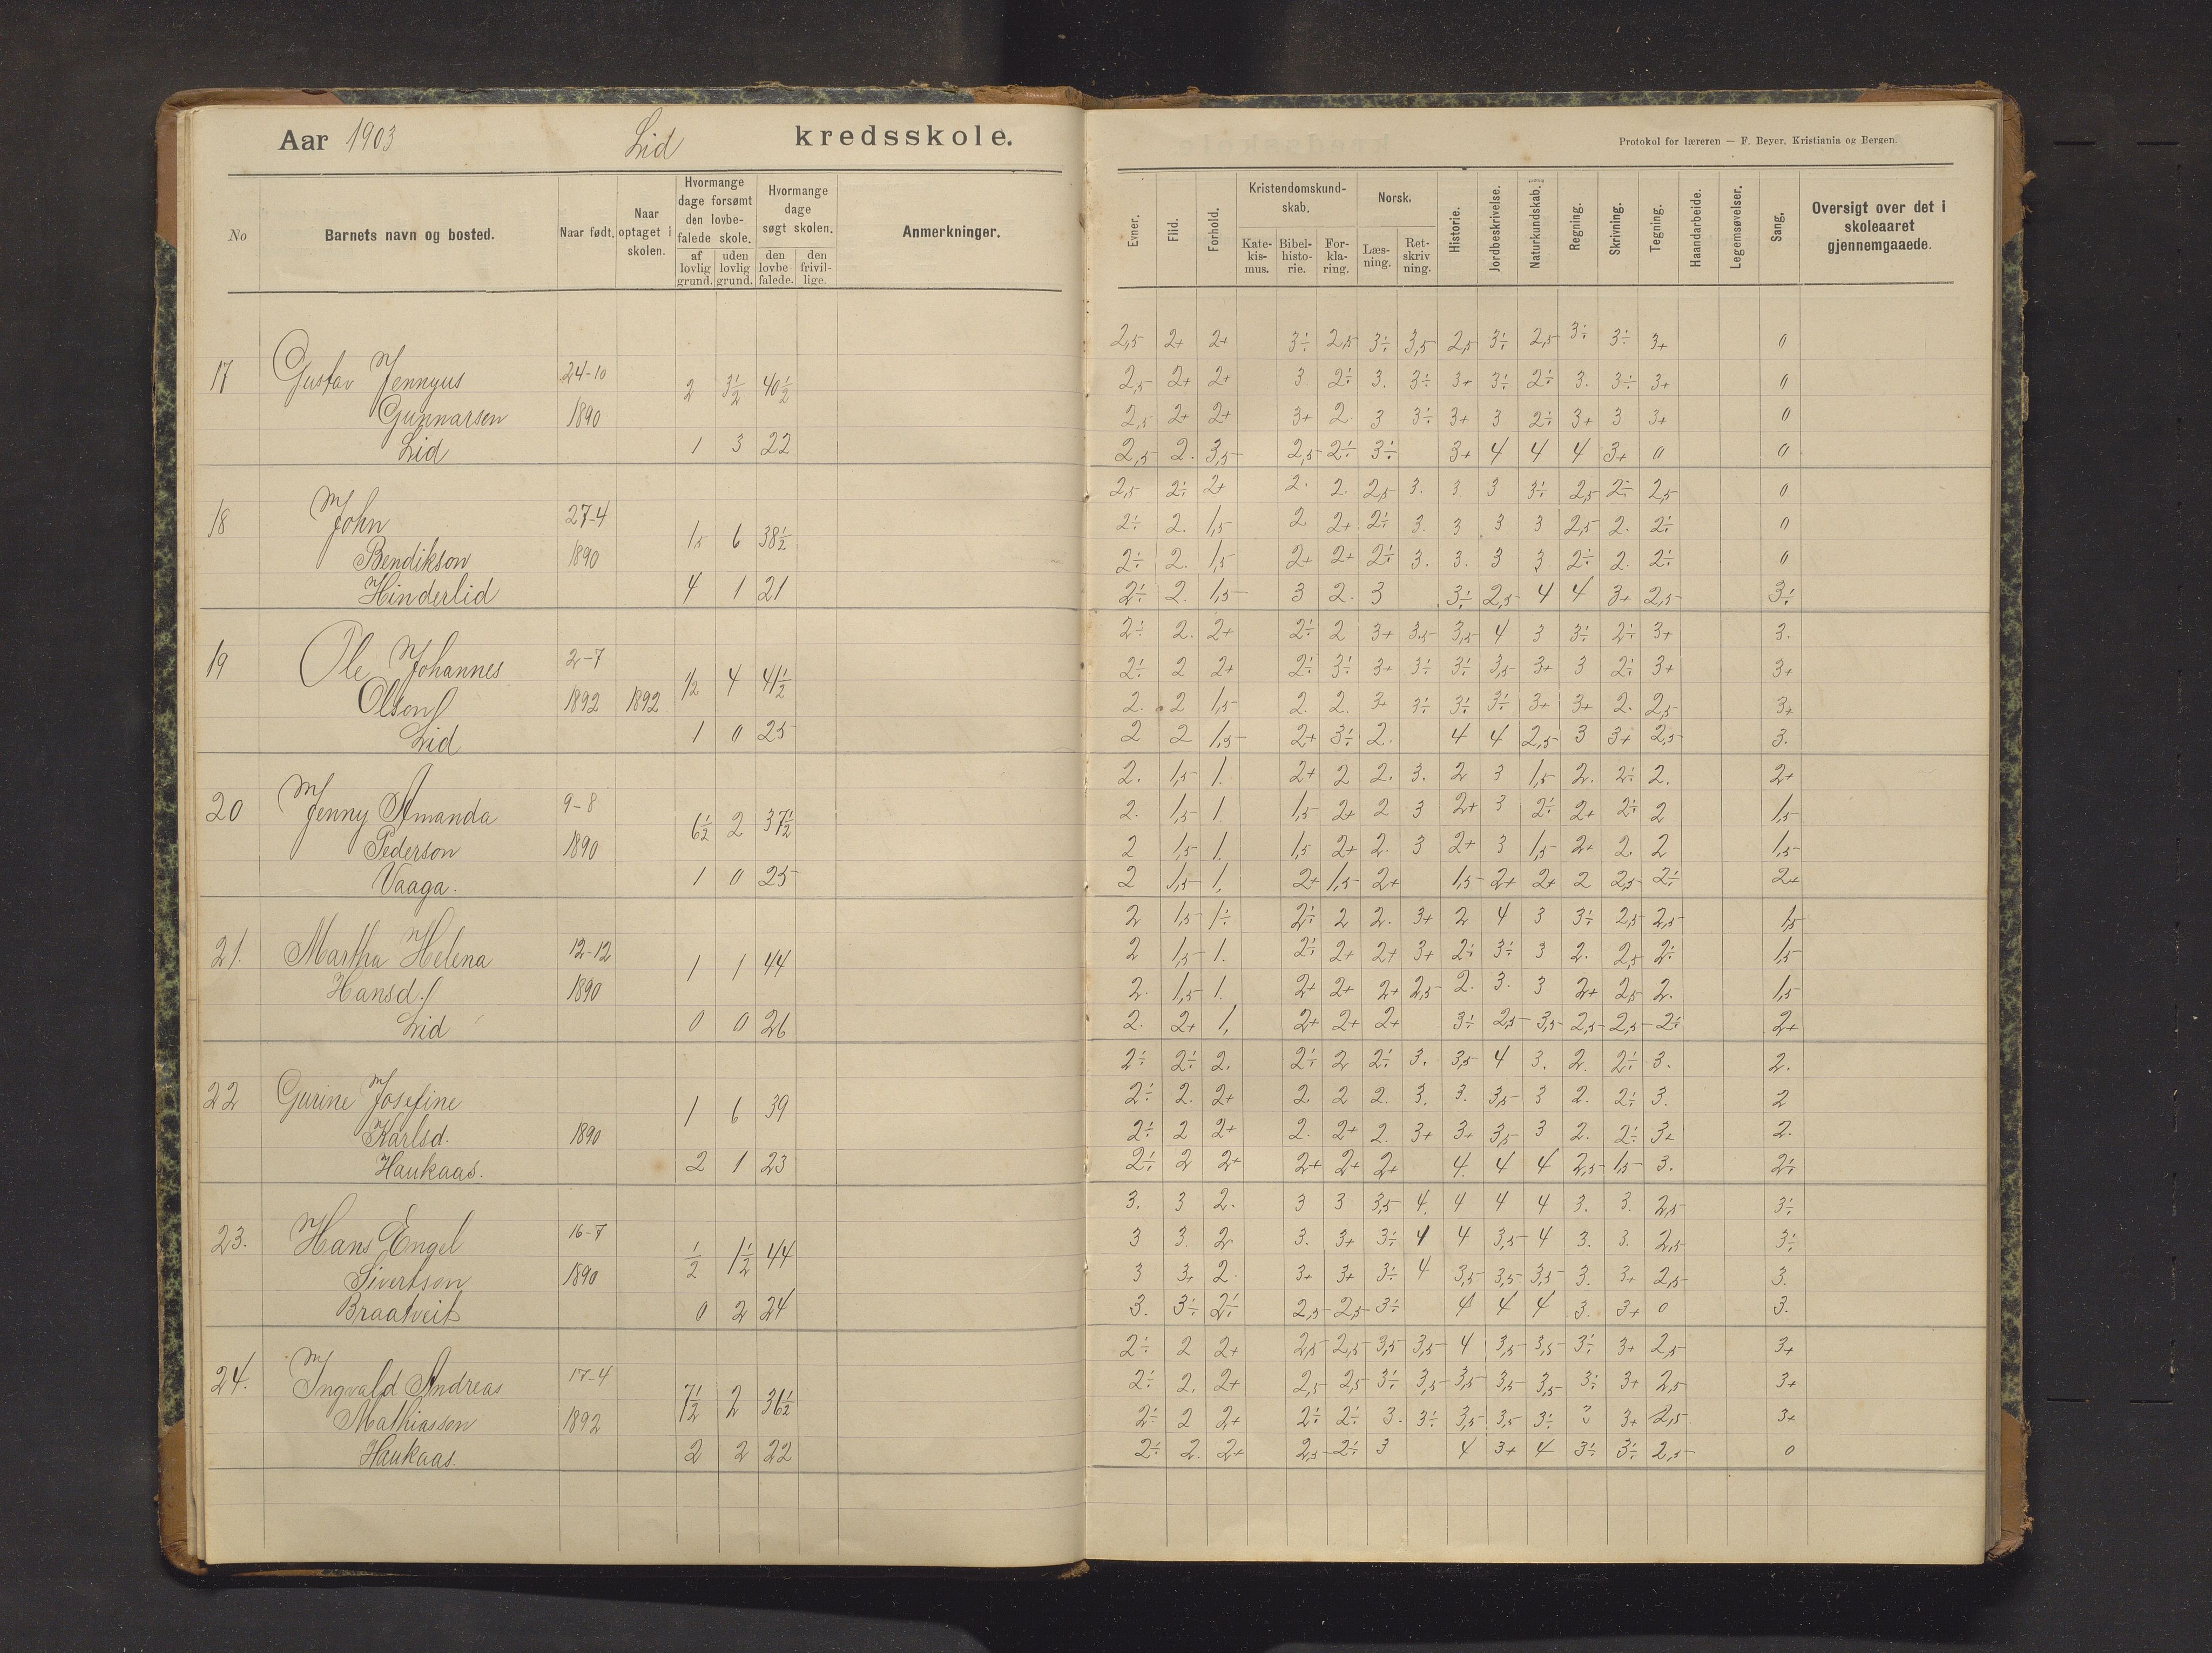 Aar 1903 Lid kredsskole.
No
Barnets navn og bosted.
Naar født.
Naar optaget i skolen.
Hvormange dage forsømt den lovbefalede skole.
af lovlig grund.
uden lovlig grund.
Hvormange dage søgt skolen.
den lovbefalede.
den frivillige.
Anmerkninger.
17 Gustav Jennyus 24-10 2 3½ 40½
Gunnarsen 1890
Lid 1 3 22
18 John 27-4 1,5 6 38½
Bendikson 1890
Hinderlid 4 1 21
19 Ole Johannes 2-7 ½ 4 41½
Olson 1892 1892
Lid 1 0 25
20 Jenny Amanda 9-8 6½ 2 37½
Pederson 1890
Vaaga. 1 0 25
21. Martha Helena 12-12 1 1 44
Hansd. 1890
Lid 0 0 26
22 Gurine Josefine 1 6 39
Karlsd. 1890
Haukaas. 2 1 23
23. Hans Engel 16-7 ½ 1½ 44
Sivertson 1890
Braatveit 0 2 24
24. Ingvald Andreas 17-4 7½ 2 36½
Mathiasson 1892
Haukaas. 2 2 22
Protokol for læreren — F. Beyer, Kristiania og Bergen.
Evner.
Flid.
Forhold.
Kristendomskundskab.
Katekismus.
Bibelhistorie.
Forklaring.
Norsk.
Læsning.
Retskrivning.
Historie.
Jordbeskrivelse.
Naturkundskab.
Regning.
Skrivning.
Tegning.
Haandarbeide.
Legemsøvelser.
Sang.
Oversigt over det i skoleaaret gjennemgaaede.
2,5 2+ 2+ 3÷ 2,5 3÷ 3,5 2,5 3÷ 2,5 3÷ 3÷ 3+ 0
2,5 2+ 2+ 3 2÷ 3. 3÷ 3+ 3÷ 2÷ 3. 3÷ 3+ 0
2,5 2+ 2+ 3+ 2. 3 3÷ 3+ 3 2÷ 3+ 3 3+ 0
2,5 2. 3,5 2,5 2÷ 3÷ 3+ 4 4 4 3+ 0 0
2,5 2÷ 2+ 2. 2. 2,5 3. 3 3 3÷ 2,5 2÷ 2,5 0
2÷ 2. 1,5 2 2+ 2÷ 3. 3 3 3 2,5 2. 2÷ 0
2÷ 2. 1,5 2+ 2+ 2÷ 3. 3. 3 3 2÷ 2. 2÷ 0
2÷ 2. 1,5 3 2. 3 3÷ 2,5 4 4 3+ 2,5 3÷
2÷ 2. 2+ 2÷ 2 3+ 3,5 3,5 4 3 3÷ 2÷ 3+ 3.
2÷ 2 2+ 2÷ 3÷ 3+ 3÷ 3÷ 3,5 3+ 3 2÷ 3+ 3+
2. 2 1,5 2. 2. 3+ 3÷ 3÷ 3÷ 3+ 3+ 2. 2,5 3+
2 2 1,5 2+ 3÷ 2. 4 4 2,5 3 3+ 2,5 3.
2. 1,5 1. 2+ 2 2. 3. 2 3 1,5 2. 2÷ 2. 2+
2. 1,5 1. 1,5 2+ 2 3 2+ 3 2÷ 2+ 2÷ 2 1,5
2 1,5 1. 1,5 2+ 2. 3 2+ 3 1,5 2+ 2. 2 1,5
2 1,5 1. 2+ 1,5 2+ 1,5 2+ 2+ 2 2,5 2÷ 2+
2 1,5 1÷ 2÷ 2 2. 3+ 2 4 3 3÷ 2,5 2,5 1,5
2 1,5 1. 2÷ 2+ 2+ 3+ 2÷ 3÷ 3 2. 2,5 2÷ 1,5
2. 1,5 1. 2+ 2+ 2+ 2,5 2. 3. 3 2+ 2,5 2. 1,5
2. 2+ 1. 2+ 2+ 2+ 3÷ 2,5 3,5 2,5 2,5 2÷ 2+
2÷ 2÷ 2. 2÷ 2 2÷ 3. 3,5 4 3. 2. 2÷ 3. 2.
2÷ 2. 2+ 2. 2 2. 3. 3. 3,5 3 2. 2÷ 3. 2
2÷ 2 2+ 2. 2+ 2. 3+ 3+ 3,5 3 2. 2÷ 3+ 2.
2÷ 2 2+ 2+ 2+ 2+ 4. 4 4 2,5 1,5 3. 2÷
3. 3 2. 3 3 3,5 4. 4 4 4 3. 3. 2,5 3÷
3 3. 2 3. 3+ 3÷ 4 4 3,5 4 3. 3. 2,5 3÷
3 3+ 2. 3+ 3+ 3÷ 4 3,5 3,5 3,5 3. 3+ 2,5 3.
3. 3÷ 2÷ 2,5 2,5 3÷ 4 4 4 3. 3+ 0 3.
2÷ 2 2+ 2,5 2,5 3,5 3,5 4 3,5 3,5 3÷ 3+ 2,5 3+
2÷ 2. 2+ 2,5 2,5 3÷ 3,5 3,5 3,5 3,5 3÷ 3+ 2,5 3+
2÷ 2 2+ 2÷ 2÷ 3. 3÷ 3,5 3,5 3÷ 3 3+ 2,5 3+
2÷ 2. 2+ 2,5 2÷ 3 4 3+ 4 3÷ 3÷ 2,5 0